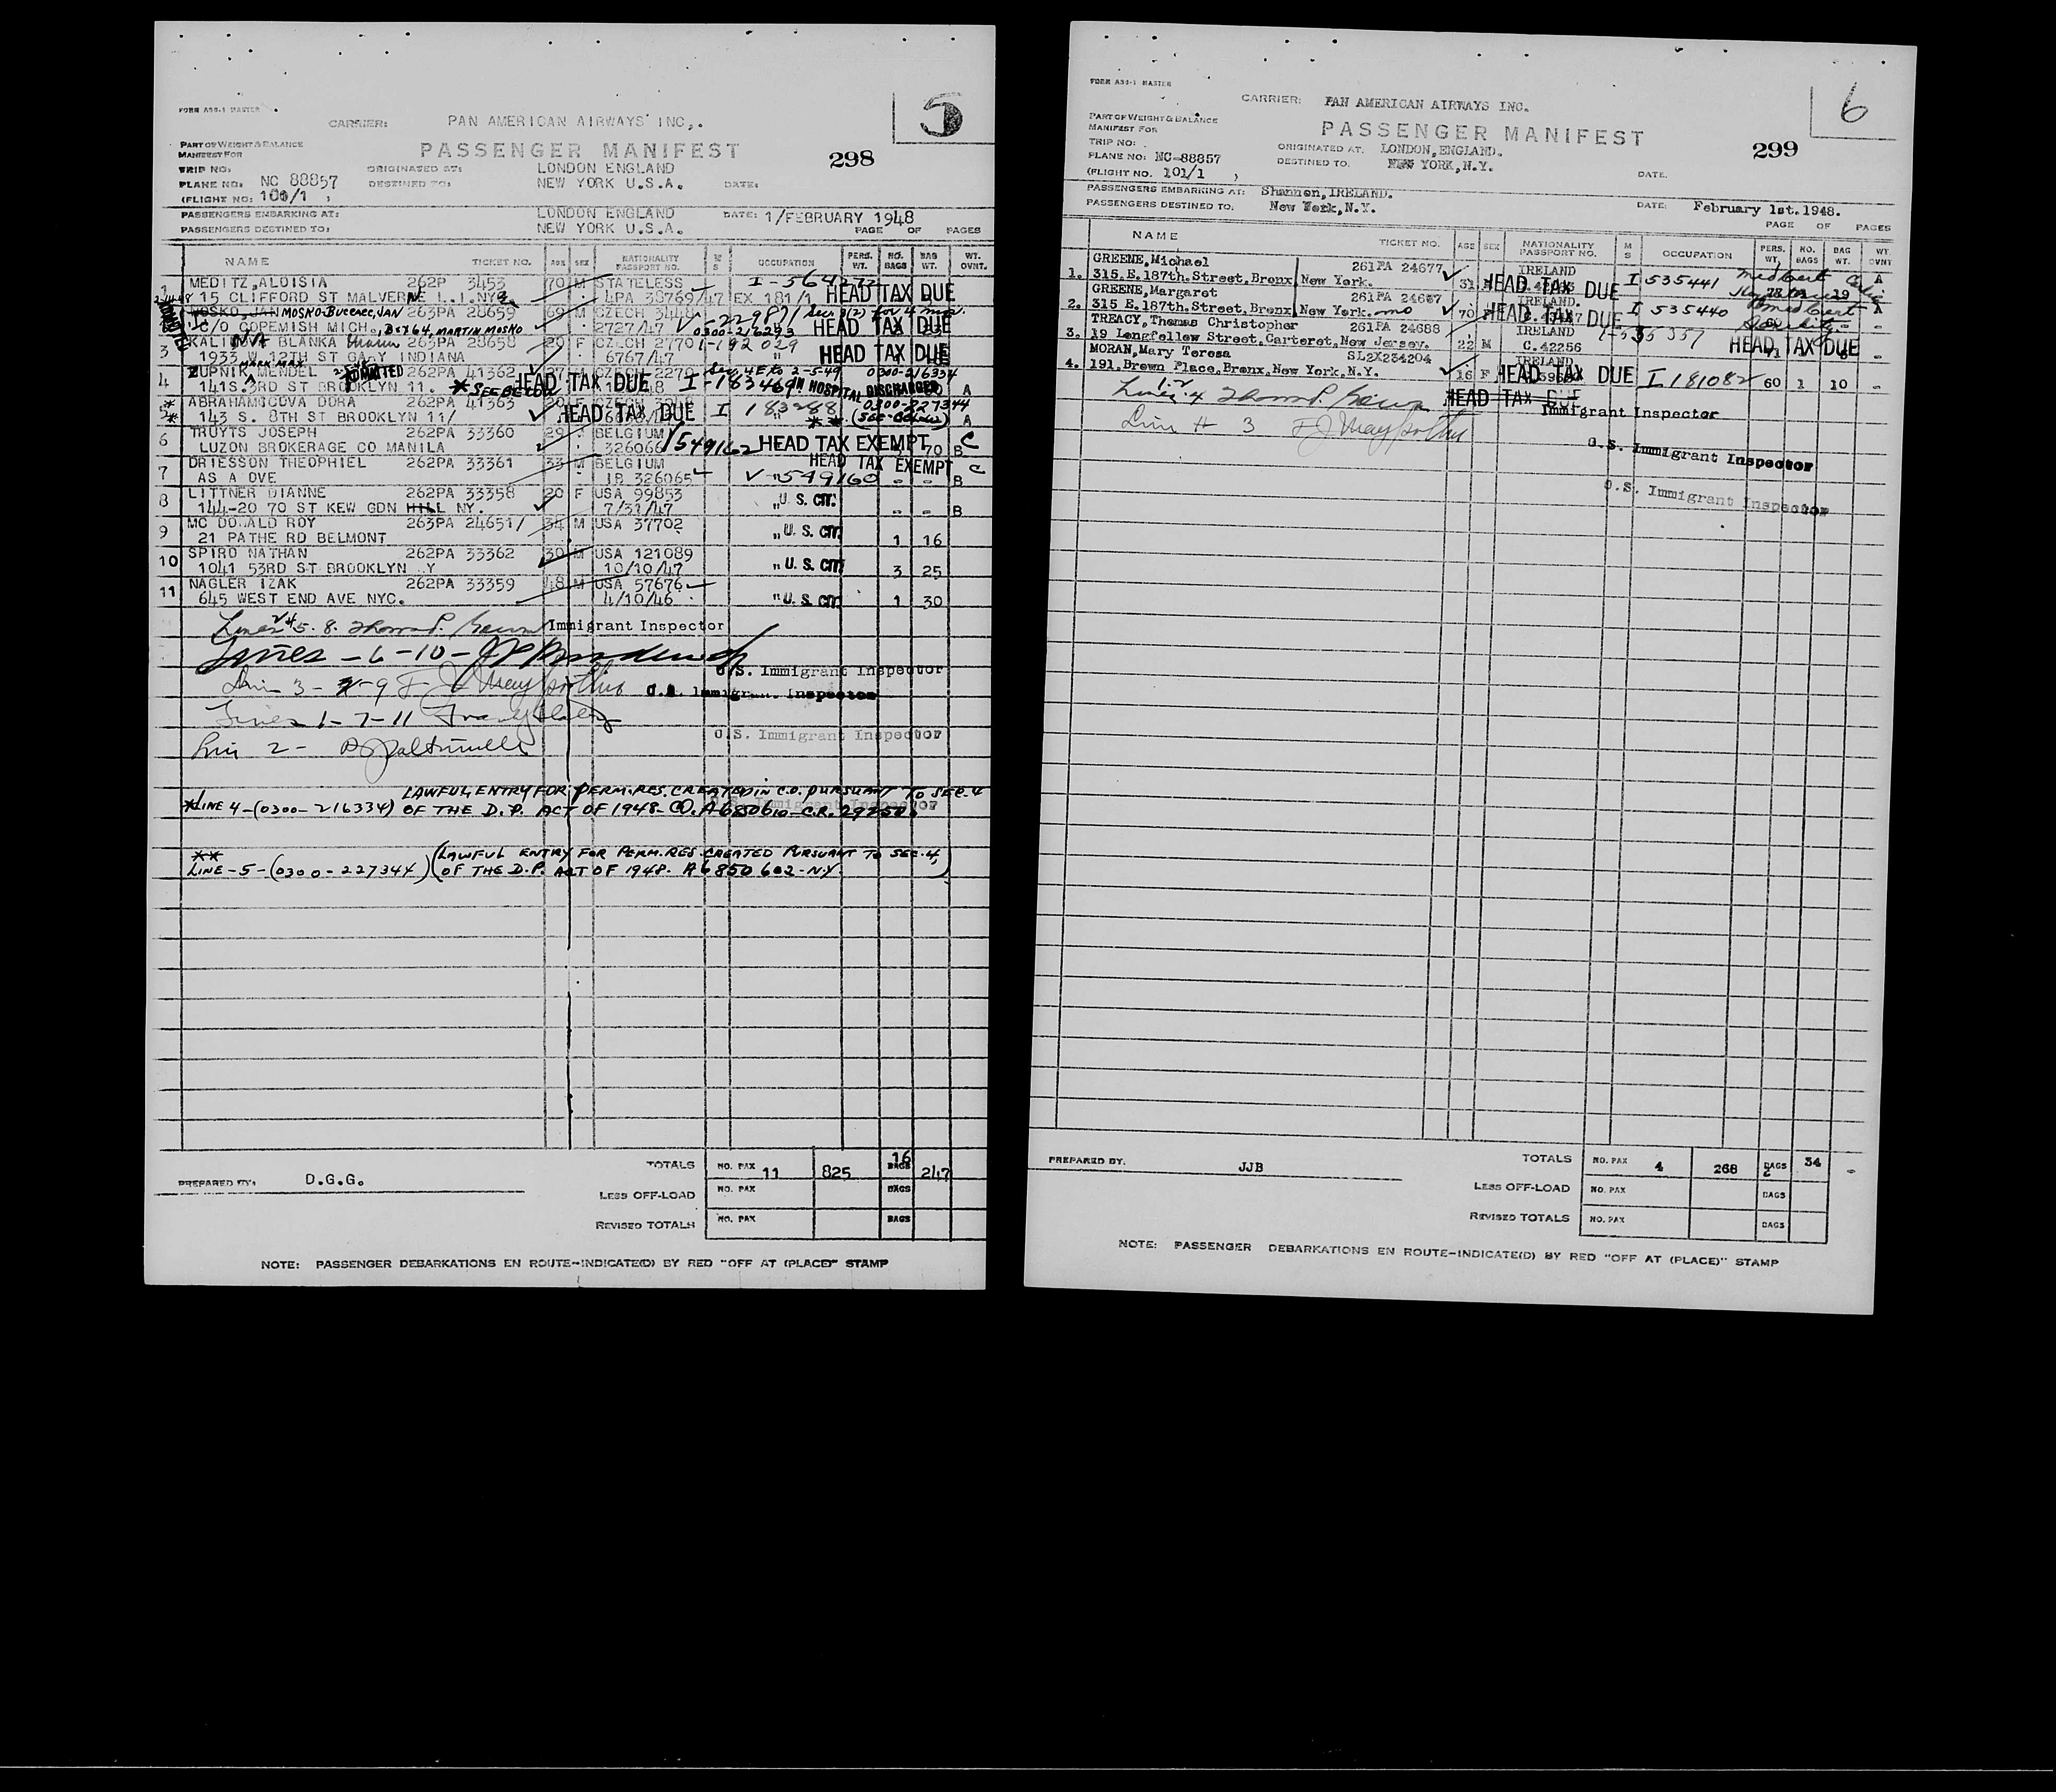 FORM ASG-1 MASTER
5
CARRIER: PAN AMERICAN AIRWAYS INC,.
PART OF WEIGHT & BALANCE
MANIFEST FOR
PASSENGER MANIFEST
298
TRIP NO:
ORIGINATED AT: LONDON ENGLAND
PLANE NO: NC 88857
DESTINED TO: NEW YORK U.S.A. DATE:
(FLIGHT NO: 100/1 )
PASSENGERS EMBARKING AT: LONDON ENGLAND DATE: 1/FEBRUARY 1948
PASSENGERS DESTINED TO: NEW YORK U.S.A. PAGE OF PAGES
NAME TICKET NO. AGE SEX NATIONALITY PASSPORT NO. M S OCCUPATION PERS. WT. NO. BAGS BAG WT. WT. OVNT.
1 MEDITZ,ALOISIA 262P 3453 70 M STATELESS
15 CLIFFORD ST MALVERNE L.I.NY. 4PA 38769/47 EX 181/1 HEAD TAX DUE
MOSKO,JAN MOSKO-BUCENEC,JAN 263PA 28659 69 M CZECH
C/O COPEMISH MICH, BX 164, MARTIN MOSKO 2727/47 0300-216293 HEAD TAX DUE
3 BLANKA 263PA 28658 20 F CZECH 2770 I-192029
1933 W 12TH ST GARY INDIANA 6767/47 " HEAD TAX DUE
4 ZUPNIK MENDEL ADMITTED 262PA 41362 27 M CZECH 2270 Sec 4 Ex 2-5-49 0300-216334
141 S. 3RD ST BROOKLYN 11. * SEE BELOW HEAD TAX DUE I-183469 IN HOSPITAL DISCHARGED A
5 ABRAHAMSCOVA DORA 262PA 41363 20 F CZECH I 183288 0300-227344
143 S. 8TH ST BROOKLYN 11/ HEAD TAX DUE ** (SEE BELOW) A
6 TRUYTS JOSEPH 262PA 33360 29 BELGIUM
LUZON BROKERAGE CO MANILA 326066 V549162 HEAD TAX EXEMPT 70 B C
7 DRIESSON THEOPHIEL 262PA 33361 33 M BELGIUM HEAD TAX EXEMPT C
AS A OVE IB 326065 V-549160 - - B
8 LITTNER DIANNE 262PA 33358 20 F USA 99853
144-20 70 ST KEW GDN HILL NY. 7/31/47 " U. S. CIT. - - B
9 MC DONALD ROY 263PA 24651/ 34 M USA 37702
21 PATHE RD BELMONT " U. S. CIT. 1 16
10 SPIRO NATHAN 262PA 33362 30 M USA 121089
1041 53RD ST BROOKLYN .Y 10/10/47 " U. S. CIT. 3 25
11 NAGLER IZAK 262PA 33359 48 M USA 57676
645 WEST END AVE NYC. 4/10/46 " U. S. CIT. 1 30
Lines 5. 8. Immigrant Inspector
Lines - 6 - 10 -
U.S. Immigrant Inspector
Line 3 - 9
U.S. Immigrant Inspector
Lines 1 - 7 - 11
Line 2 -
U.S. Immigrant Inspector
LAWFUL ENTRY FOR PERM. RES. CREATED IN C.O. PURSUANT TO SEC. 4
*LINE 4-(0300-216334) OF THE D.P. ACT OF 1948-
U.S. Immigrant Inspector
**
LINE-5-(0300-227344) (LAWFUL ENTRY FOR PERM. RES. CREATED PURSUANT TO SEC. 4,
OF THE D.P. ACT OF 1948. A6850 602-N.Y.)
TOTALS NO. PAX 11 825 16 BAGS 247
PREPARED BY: D.G.G.
LESS OFF-LOAD NO. PAX BAGS
REVISED TOTALS NO. PAX BAGS
NOTE: PASSENGER DEBARKATIONS EN ROUTE-INDICATE(D) BY RED "OFF AT (PLACE)" STAMP
FORM ASG-1 MASTER
6
CARRIER: PAN AMERICAN AIRWAYS INC.
PART OF WEIGHT & BALANCE
MANIFEST FOR
PASSENGER MANIFEST
299
TRIP NO:
ORIGINATED AT. LONDON,ENGLAND.
PLANE NO: NC-88857
DESTINED TO. NEW YORK,N.Y. DATE.
(FLIGHT NO. 101/1 )
PASSENGERS EMBARKING AT: Shannon,IRELAND.
PASSENGERS DESTINED TO. New York,N.Y. DATE: February 1st.1948.
PAGE OF PAGES
NAME TICKET NO. AGE SEX NATIONALITY PASSPORT NO. M S OCCUPATION PERS. WT. NO. BAGS BAG WT. WT. OVNT
GREENE,Michael 261PA 24677 IRELAND
1. 315.E.187th.Street,Bronx,New York. 31 HEAD TAX DUE I 535441 A
GREENE,Margaret 261PA 24667 IRELAND.
2. 315 E.187th.Street,Bronx,New York. 70 HEAD TAX DUE I 535440 A
TREACY,Thomas Christopher 261PA 24688 IRELAND
3. 19 Longfellow Street,Carteret,New Jersey. 22 M C.42256 HEAD TAX DUE
MORAN,Mary Teresa SL2X234204 IRELAND
4. 191.Brown Place,Bronx,New York,N.Y. 16 F HEAD TAX DUE I 181082 60 1 10 -
HEAD TAX DUE
Immigrant Inspector
Line # 3
U.S. Immigrant Inspector
U.S. Immigrant Inspector
PREPARED BY. JJB
TOTALS NO. PAX 4 268 BAGS 34
LESS OFF-LOAD NO. PAX BAGS
REVISED TOTALS NO. PAX BAGS
NOTE: PASSENGER DEBARKATIONS EN ROUTE-INDICATE(D) BY RED "OFF AT (PLACE)" STAMP